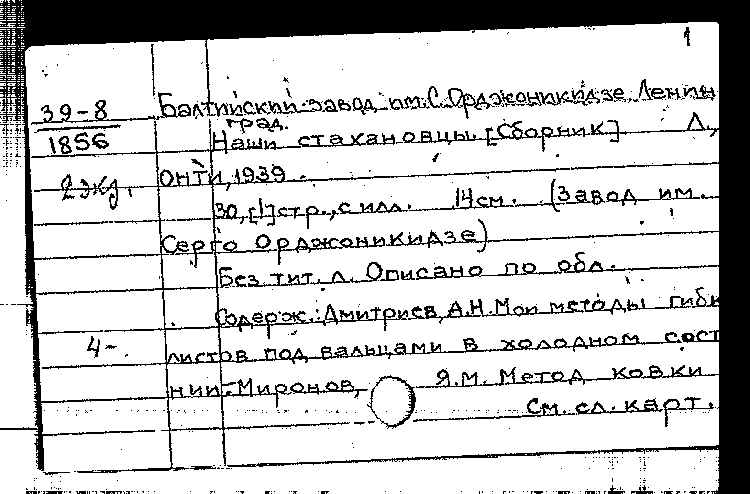 1
39-8
1856
2 экз.
4-.
Балтийский завод им. С. Орджоникидзе. Ленин
град.
Наши стахановцы. [Сборник] Л.,
ОНТИ, 1939.
30, [1] стр., с илл. 14 см. (Завод им.
Серго Орджоникидзе)
Без тит. л. Описано по обл.
Содерж.: Дмитриев, А.Н. Мои методы гибк
листов под вальцами в холодном сост
нии.-Миронов, Я.М. Метод ковки
См. сл. карт.